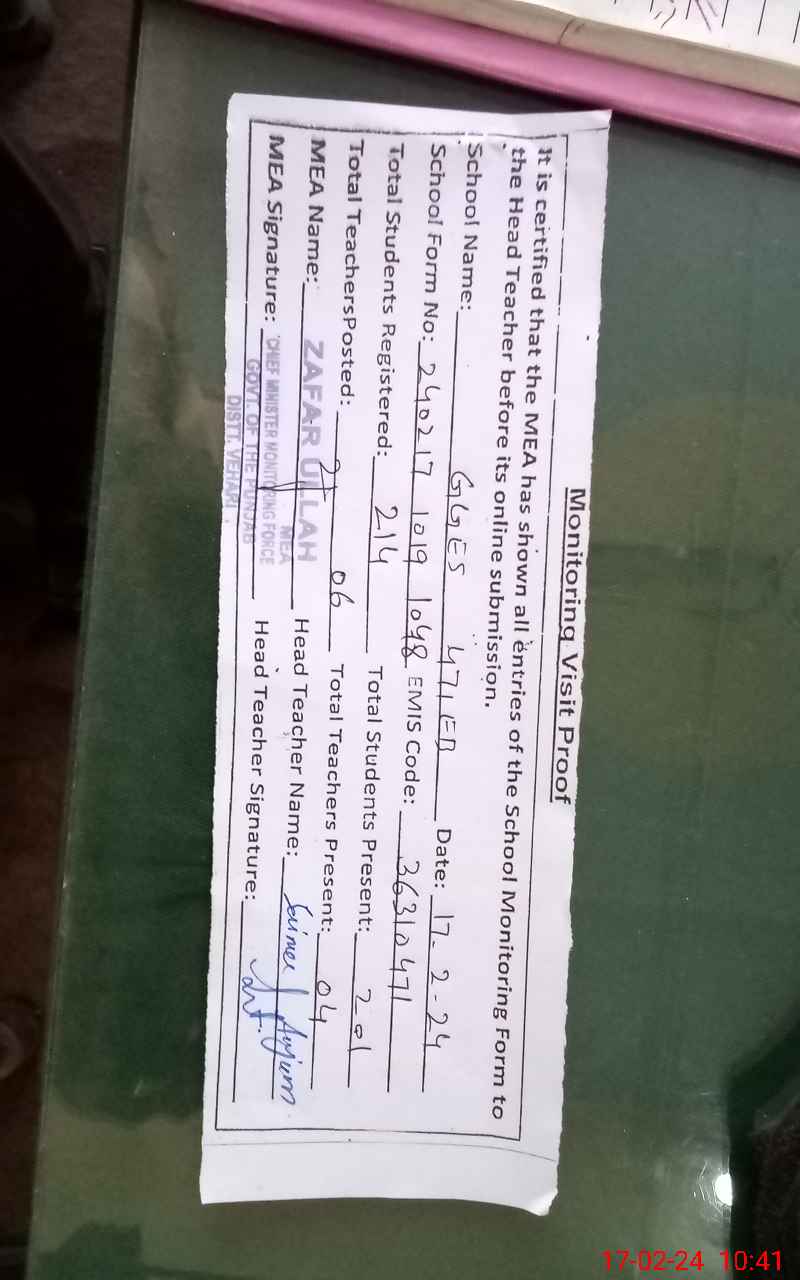 Monitoring Visit Proof
It is certified that the MEA has shown all entries of the School Monitoring Form to
the Head Teacher before its online submission.
School Name: GGES 471 EB Date: 17-2-24
School Form No: 240217 1019 1048 EMIS Code: 36310471
Total Students Registered: 214 Total Students Present: 201
Total TeachersPosted: 06 Total Teachers Present: 04
MEA Name: ZAFAR ULLAH Head Teacher Name: Anjum
MEA
MEA Signature: CHIEF MINISTER MONITORING FORCE Head Teacher Signature:
GOVT. OF THE PUNJAB
DISTT. VEHARI
17-02-24 10:41